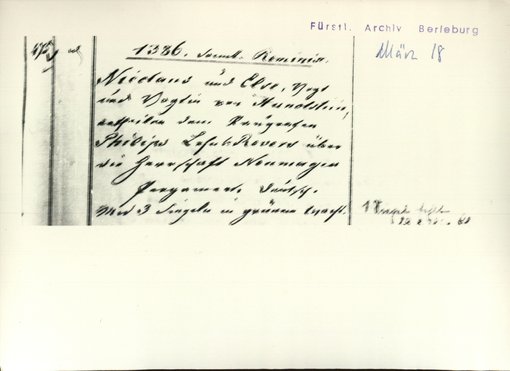 Fürstl. Archiv Berleburg
März 18
475
1386. Sonnt. Reminis.
Nicolaus und Else, Vogt
und Vogtin von Hunolstein,
ertheilen dem
Philips Lehn Revers über
die Herrschaft Neumagen
Pergament. Deutsch.
Mit 3 Siegeln in grünem Wachs.